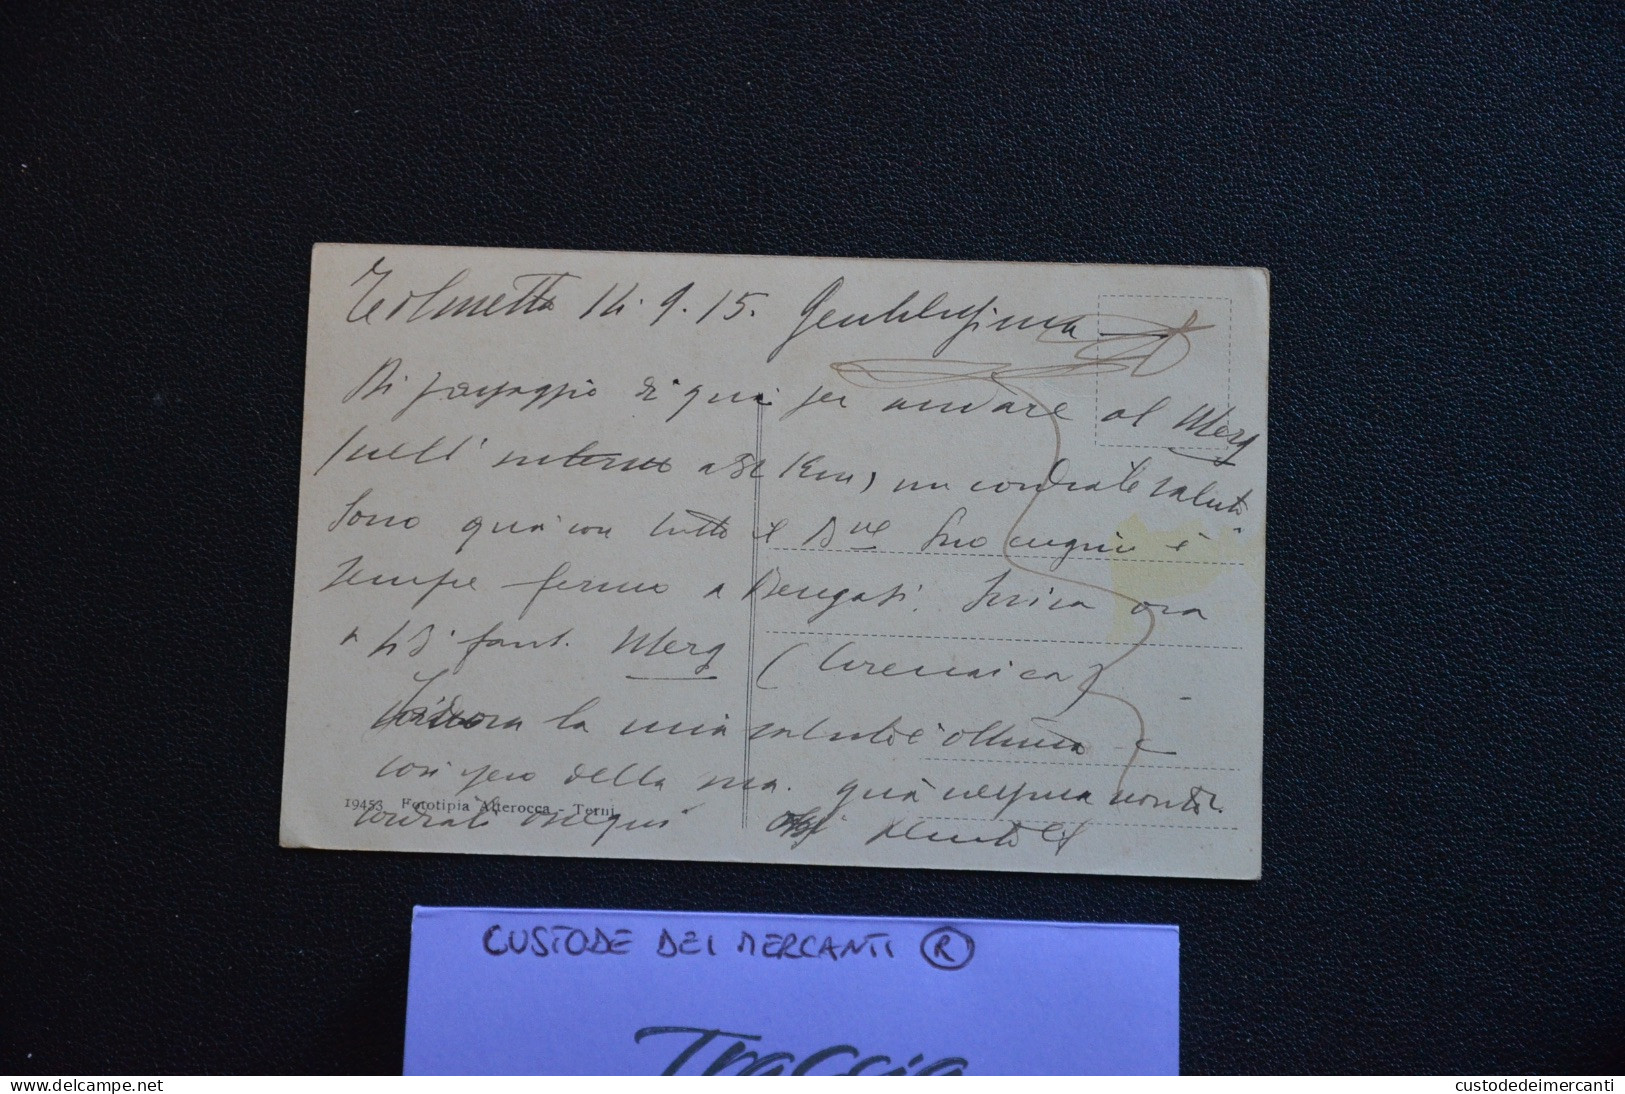 Tolmetta 14.9.15. Gentilissima
Di passaggio di qui per andare al Merg
nell' interno a 32 Km, un cordiale saluto
Sono qua con tutto il Suo cugino è
sempre fermo a Bengasi. Scriva ora
a fant. Merg (Cirenaica)
la mia salute è ottima e
così spero della sua. qua nessuna novità.
19453 Fototipia Alterocca - Terni
cordiali ossequi
CUSTODE DEI MERCANTI ®
Traccia
www.delcampe.net
custodedeimercanti